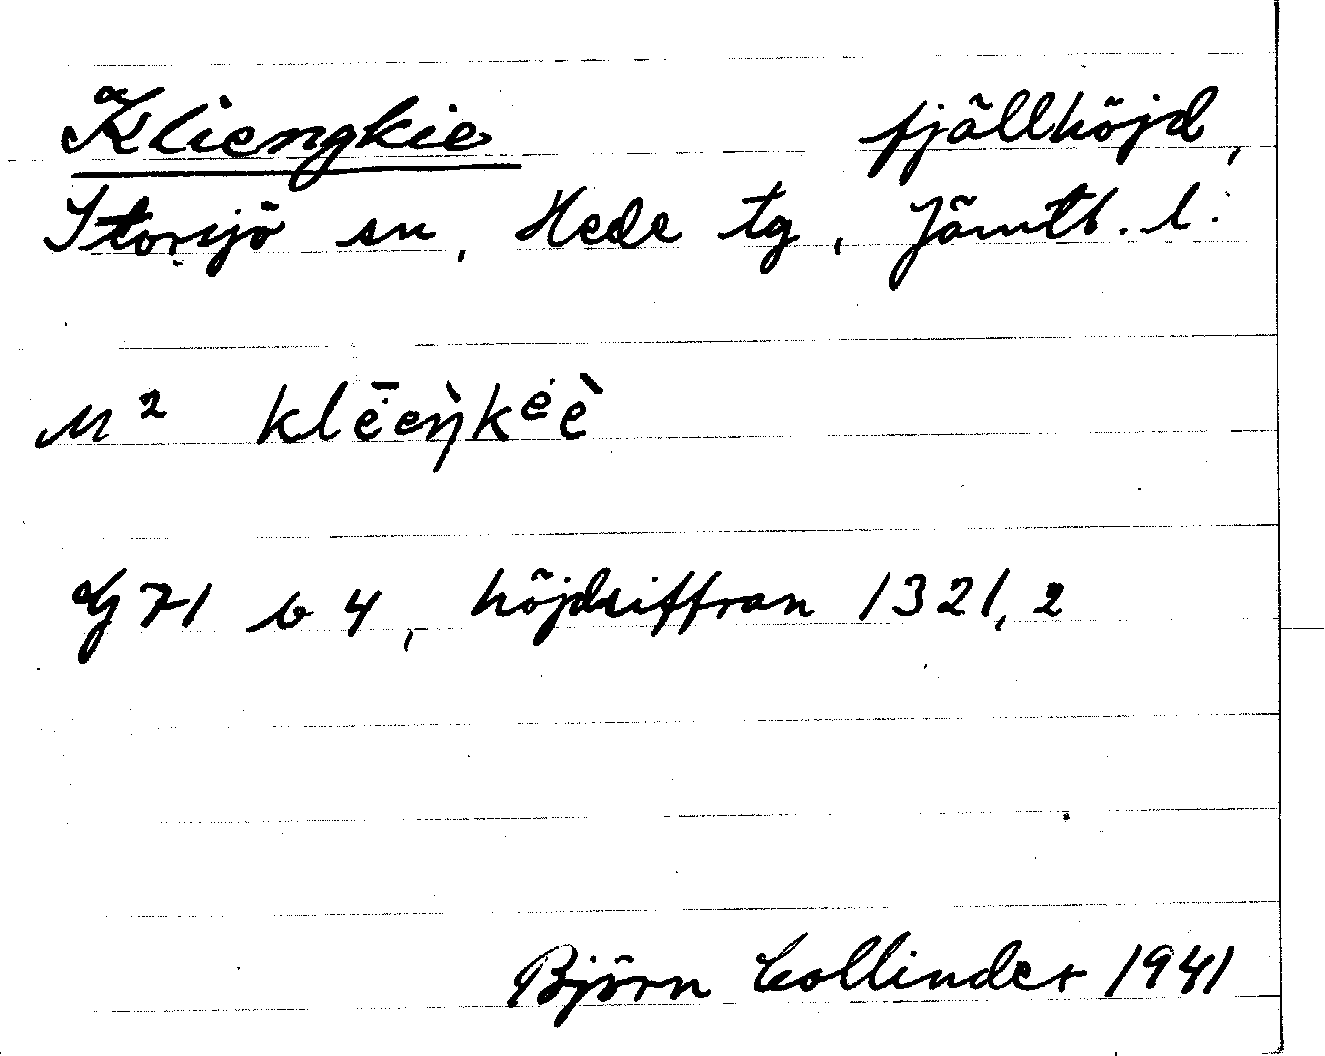 Kliengkie fjällhöjd,
Storsjö sn, Hede tg, Jämtl. l.
M² klē̇eŋ̀kėè
Gg 71 b 4, höjdsiffran 1321,2
Björn Collinder 1941